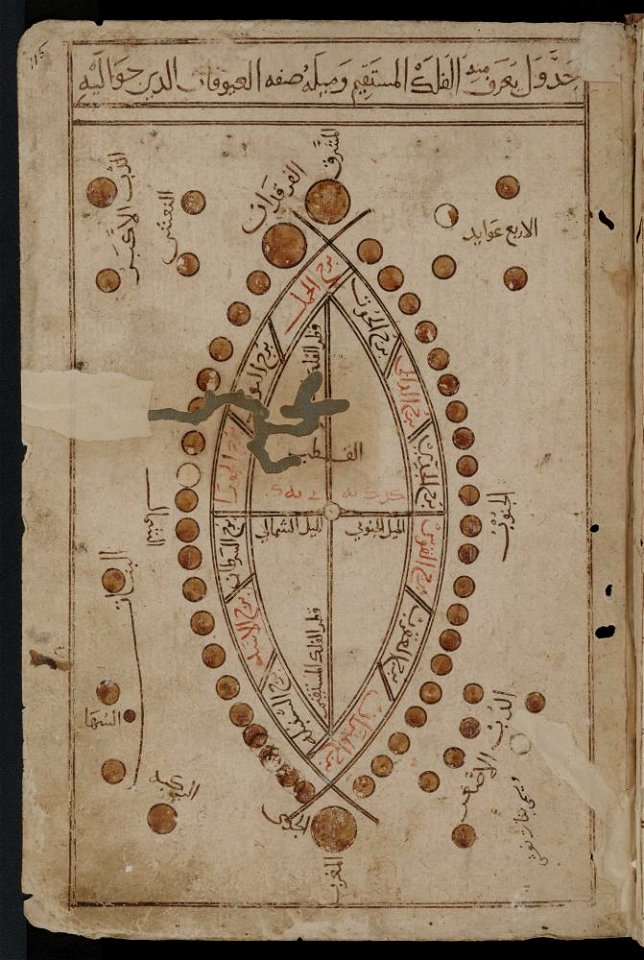 جدول يعرف منه الفلك المستقيم وميله وصفه العيوقات الذين حواليه
المشرق
الفرقدان
الدب الاكبر
النعش
الاربع عوايد
برج الحمل
برج الحوت
برج الثور
برج الدالي
قطر الفلك
برج الجوزا
برج الجدي
القطب
الميل الشمالي
الميل الجنوبي
الجنوب
برج السرطان
برج القوس
برج الاسد
برج العقرب
قطر الفلك المستقيم
برج السنبله
برج الميزان
البنات
السها
الجدي
الدب الاصغر
المغرب